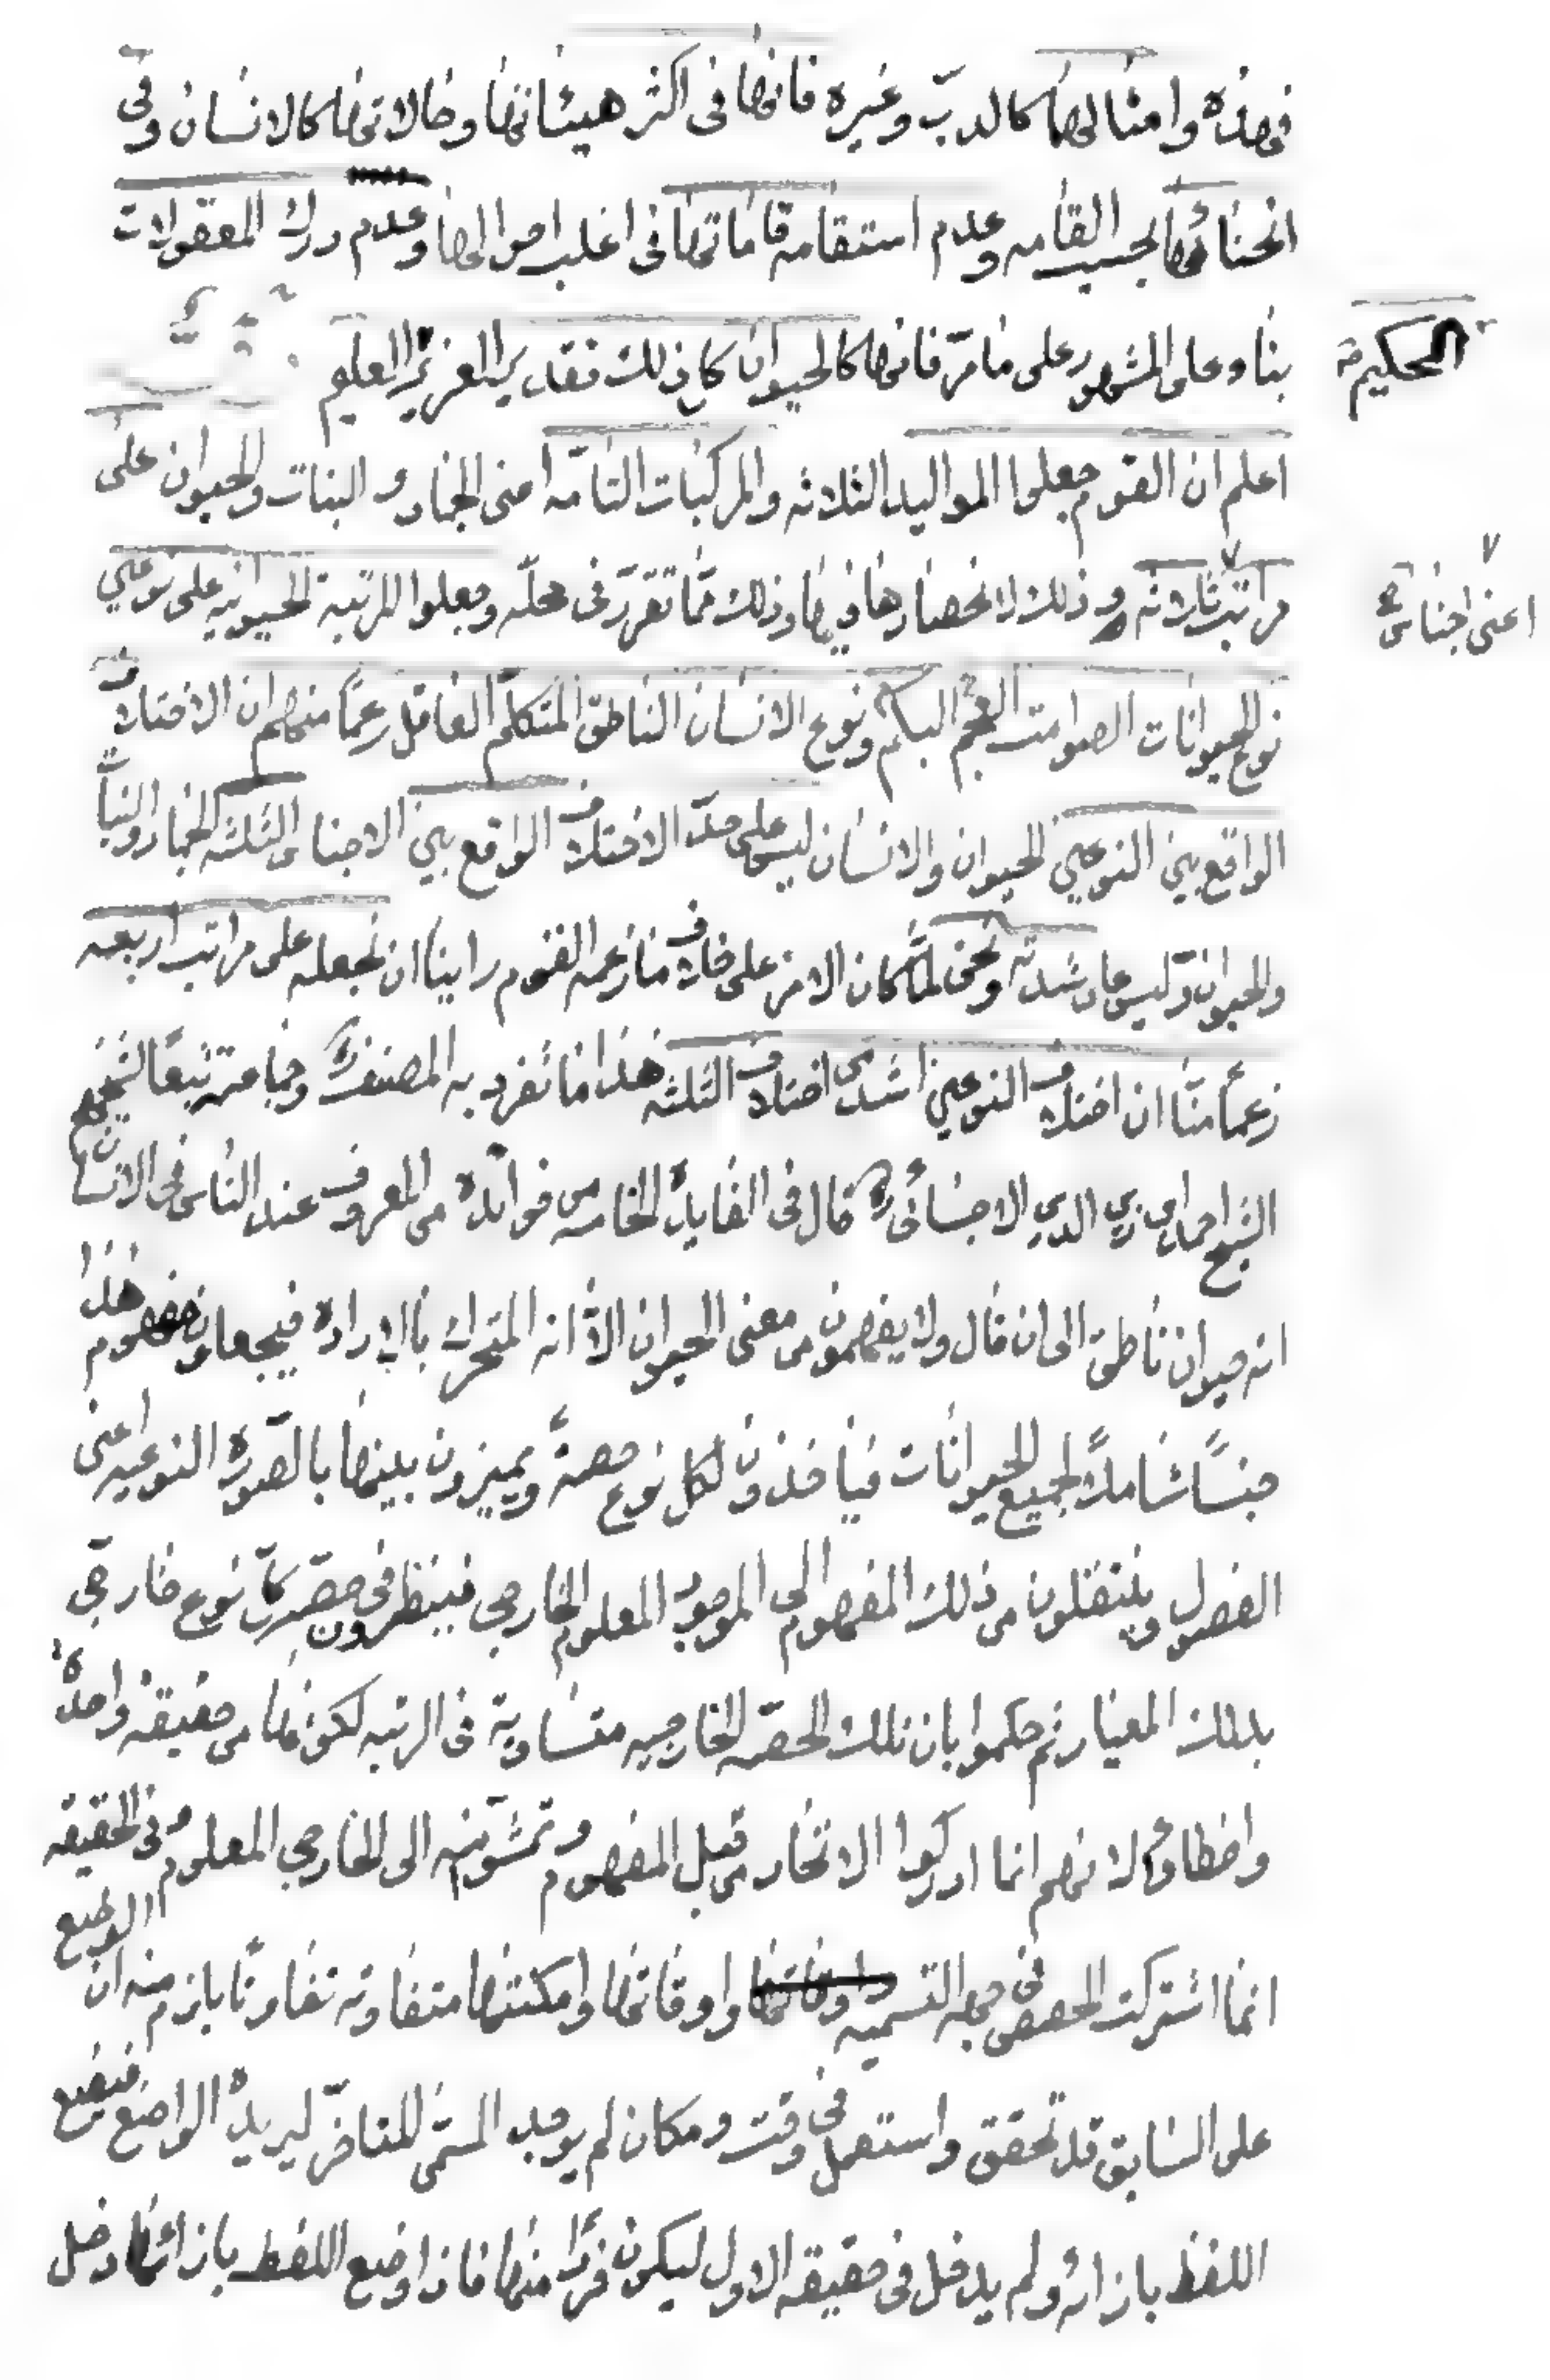 فهذه وامثالها كالدبّ وغيره فانها فى اكثر هيئاتها وحالاتها كالانسان وفى
انحنائها بحسب القامه وعدم استقامه قاماتها فى اغلب احوالها وعدم درك المعقولات
بناء على المشهور على ما مرّ فانها كالحيوان كان ذلك تقدير العزيز العليم
الحكيم
اعلم ان القوم جعلوا المواليد الثلاثه والمركبات التامّه اعنى الجماد و النبات والحيوان على
مراتب ثلاثه و ذلك لانحصارها فيها وذلك ممّا تقرّر فى محلّه وجعلوا المرتبة الحيوانيه على نوعين
اعنى اجناس
نوع الحيوانات الصوامت العجم البكم ونوع الانسان الناطق المتكلّم العاقل زعمًا منهم ان الاختلاف
الواقع بين النوعين الحيوان والانسان ليس على حدّ الاختلاف الواقع بين الاجناس الثلثه الجماد والنبات
والحيوان وليس على شدته ونحن لمّا كان الامر على خلاف ما زعمه القوم راينا ان نجعله على مراتب اربعه
زعمًا منّا ان اختلاف النوعين اشد من اختلاف الثلثه هذا ما تفرد به المصنف وجماعة تبعًا لشيخهم
الشيخ احمد بن زين الدين الاحسائى قال فى الفايدة الخامسه من فوائده من المعروف عند الناس فى الانسان
انه حيوان ناطق الى ان قال ولا يفهمون من معنى الحيوان الّا انه المتحرك بالاراده فيجعلون مفهوم هذا
جنسًا شاملًا لجميع الحيوانات فياخذون لكل نوع حصةً ويميزون بينها بالصّورة النوعيه اعنى
الفصول وينتقلون من ذلك المفهوم الى الموجود المعلوم الخارجى فينظرون فى حصّة كلّ نوع خارجى
بذلك المعيار ثم حكموا بان تلك الحصّه الخارجيه متساوية فى الرتبه لكونها من حقيقة واحدة
واخطاوا لانهم انما ادركوا الاتحاد من قبل المفهوم وتمشوا منه الى الخارجى المعلوم وفى الحقيقه
انما اشتركت الحصص فى جهه التسميه واوقاتها وامكنتها متفاوته تفاوتًا يلزم منه ان الوضع
على السّابق قد تحقق واستعمل فى وقت ومكان لم يوجد المسمّى المتاخّر ليريده الواضع فيضع
اللفظ بازائه ولم يدخل فى حقيقه الاول ليكون فردًا منها فاذا وضع اللفظ بازائها دخل